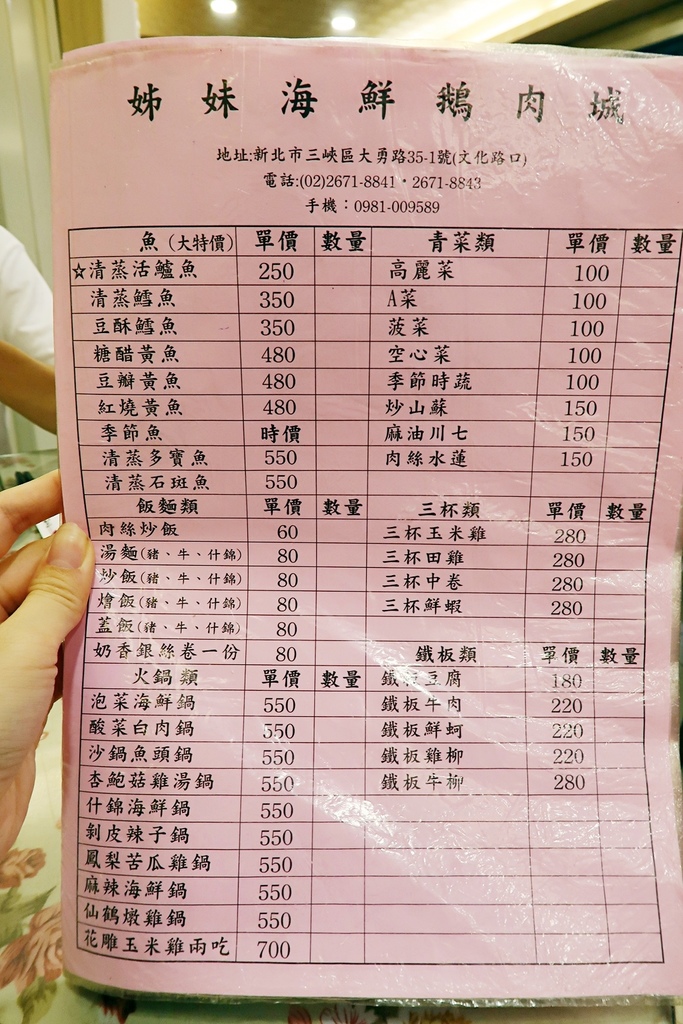 姊妹海鮮鵝肉城
地址:新北市三峽區大勇路35-1號(文化路口)
電話:(02)2671-8841・2671-8843
手機：0981-009589
魚（大特價） 單價 數量 青菜類 單價 數量
☆清蒸活鱸魚 250 高麗菜 100
清蒸鱈魚 350 A菜 100
豆酥鱈魚 350 菠菜 100
糖醋黃魚 480 空心菜 100
豆瓣黃魚 480 季節時蔬 100
紅燒黃魚 480 炒山蘇 150
季節魚 時價 麻油川七 150
清蒸多寶魚 550 肉絲水蓮 150
清蒸石斑魚 550
飯麵類 單價 數量 三杯類 單價 數量
肉絲炒飯 60 三杯玉米雞 280
湯麵(豬、牛、什錦) 80 三杯田雞 280
炒飯(豬、牛、什錦) 80 三杯中卷 280
燴飯(豬、牛、什錦) 80 三杯鮮蝦 280
蓋飯(豬、牛、什錦) 80
奶香銀絲卷一份 80 鐵板類 單價 數量
火鍋類 單價 數量 鐵板豆腐 180
泡菜海鮮鍋 550 鐵板牛肉 220
酸菜白肉鍋 550 鐵板鮮蚵 220
沙鍋魚頭鍋 550 鐵板雞柳 220
杏鮑菇雞湯鍋 550 鐵板牛柳 280
什錦海鮮鍋 550
剝皮辣子鍋 550
鳳梨苦瓜雞鍋 550
麻辣海鮮鍋 550
仙鶴燉雞鍋 550
花雕玉米雞兩吃 700